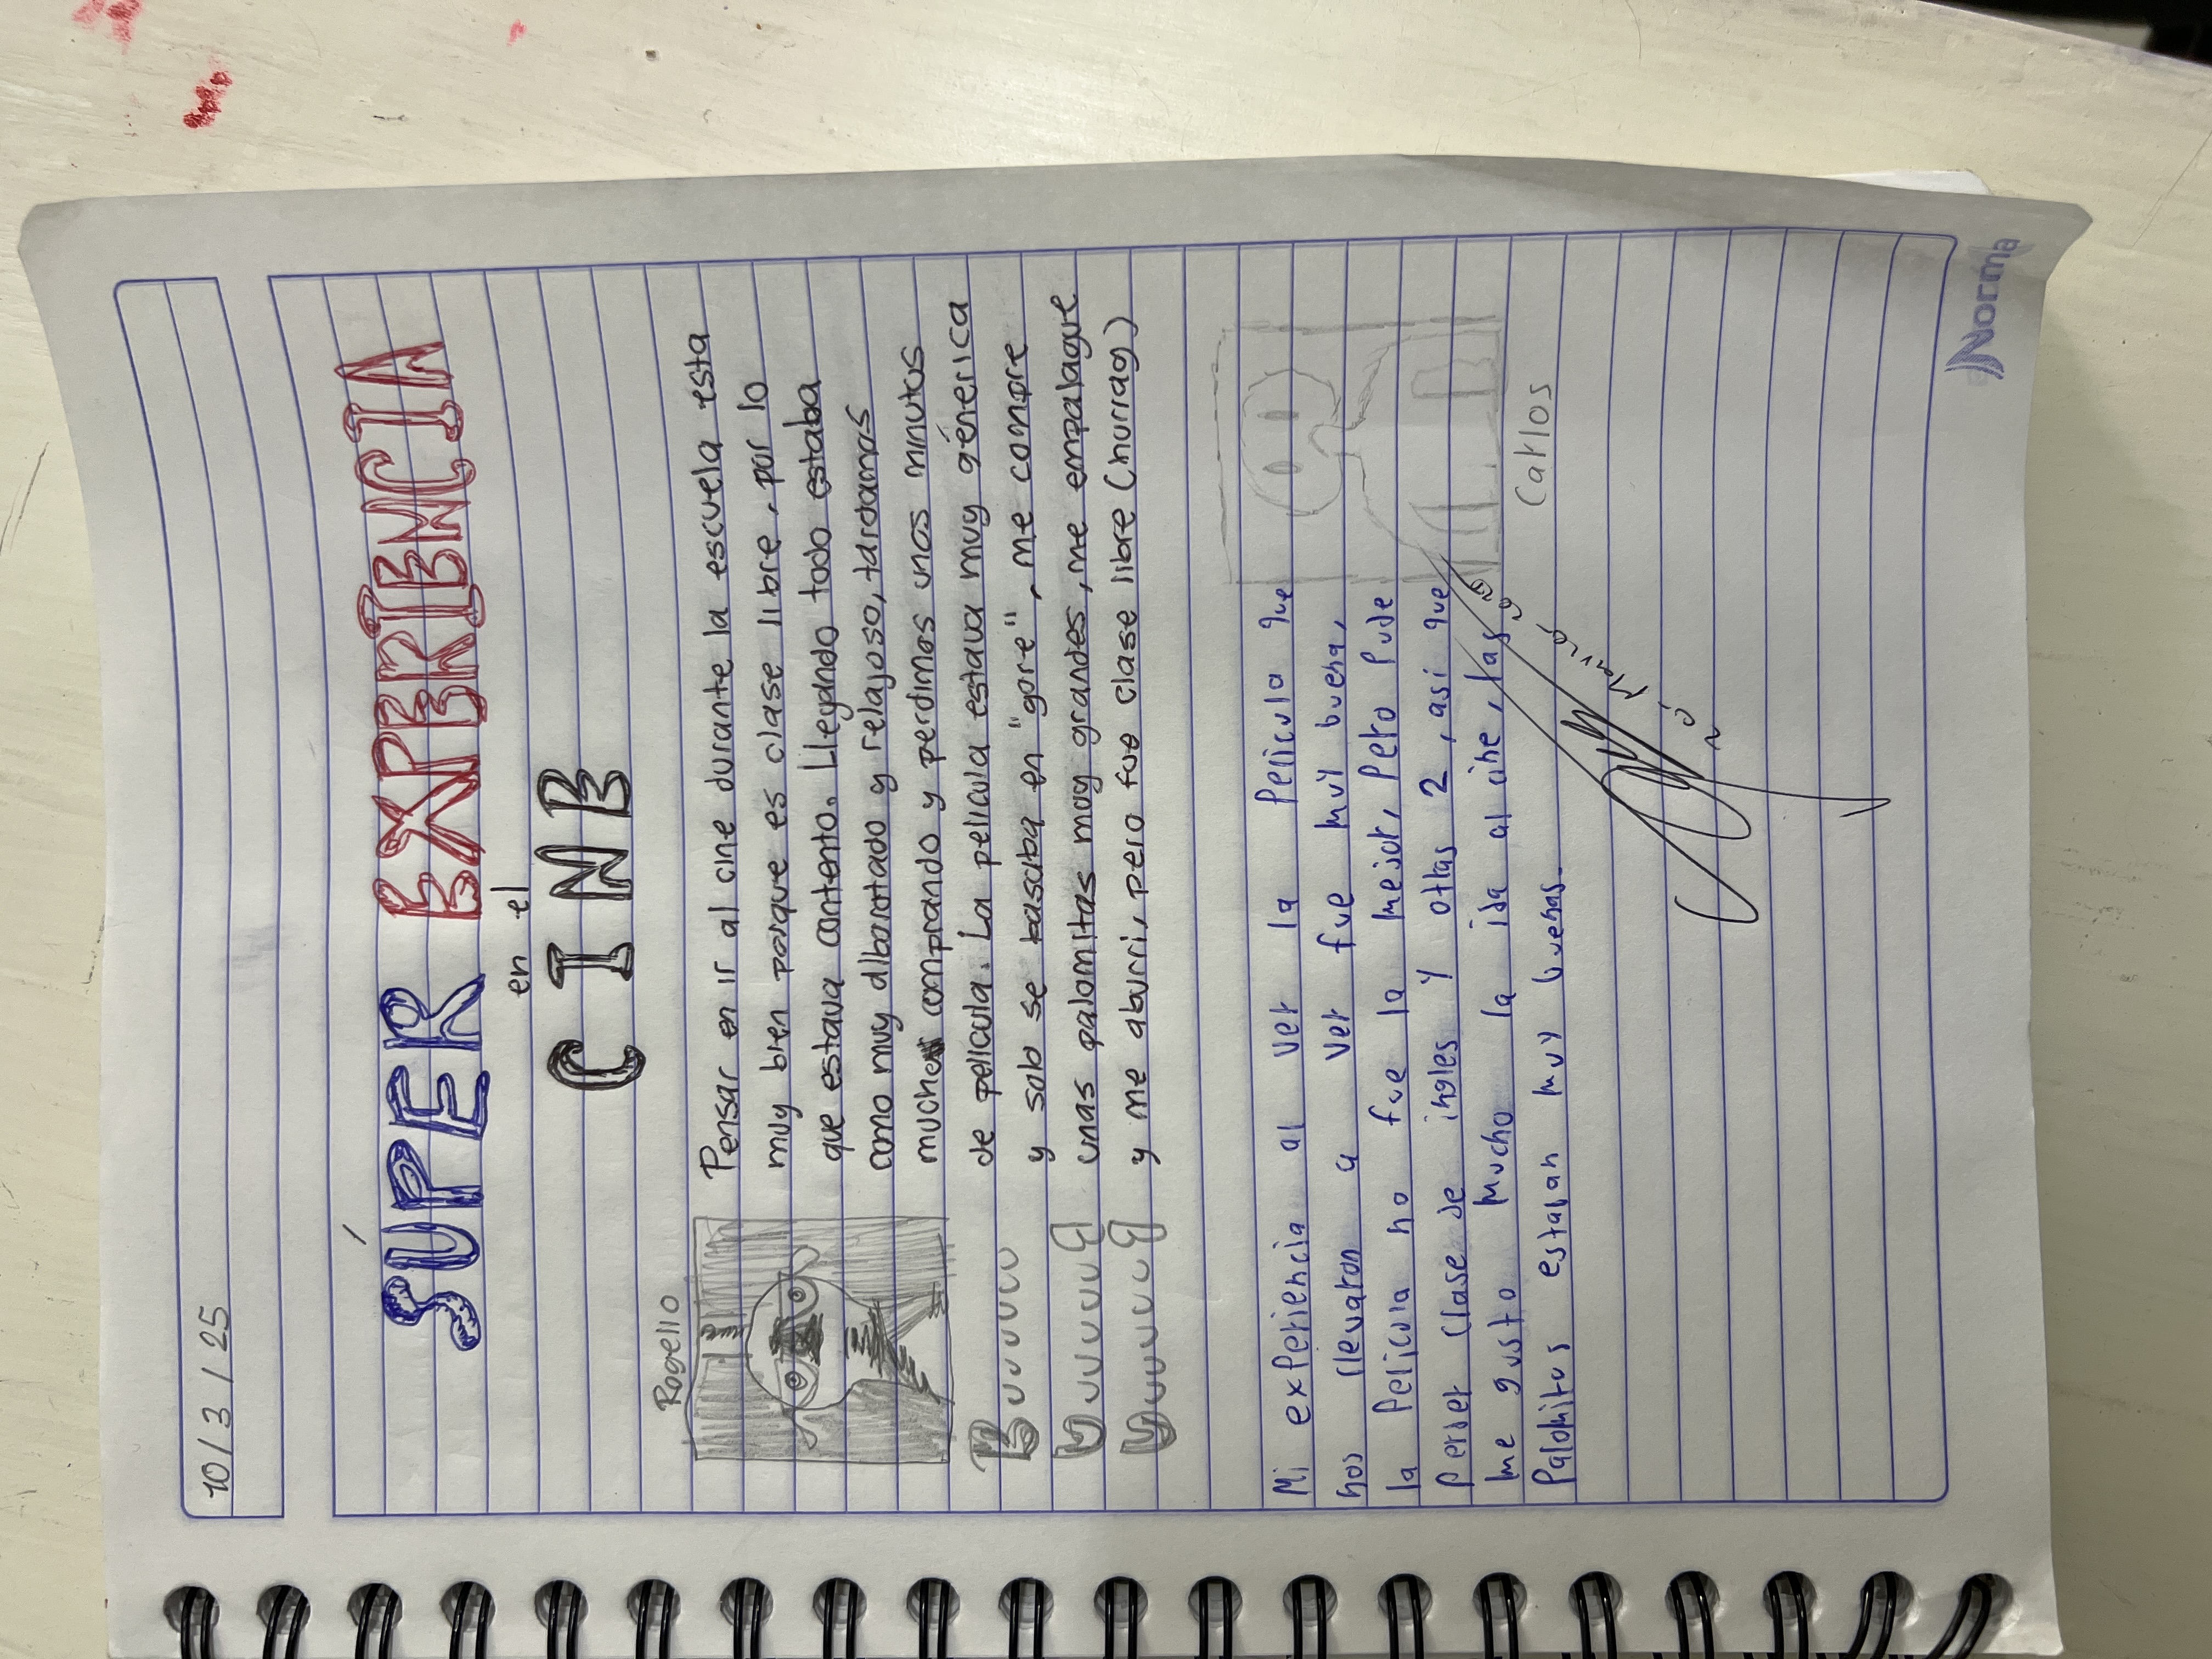 10/3/25
SÚPER EXPERIENCIA
en el
CINE
Rogelio
Pensar en ir al cine durante la escuela esta
muy bien porque es clase libre, por lo
que estava contento. Llegando todo estaba
como muy alborotado y relajoso, tardamos
mucho comprando y perdimos unos minutos
de pelicula. La pelicula estava muy génerica
y solo se basaba en "gore", me compre
unas palomitas muy grandes, me empalague
y me aburri, pero fue clase libre (hurrag)
Buuuuuu
Mi experiencia al ver la Pelicula que
nos llevaron a ver fue muy buena,
la Pelicula no fue la mejor, Pero Pude
Perder clase de ingles y otras 2, asi que
me gusto mucho la ida al cine, las
Palomitas estaban muy buenas.
Carlos
Norma